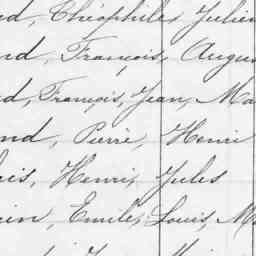 d, Théophile, Julien
nd, François, Augus
d, François, Jean, Ma
nd, Pierre, Henri
is, Henri, Jules
in, Emile, Louis, M